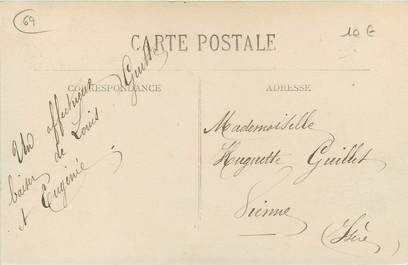 69
10 €
CARTE POSTALE
CORRESPONDANCE
ADRESSE
Un affectueux
baiser de Louis
et Eugénie
Mademoiselle
Huguette Guillet
Vienne
(Isère)